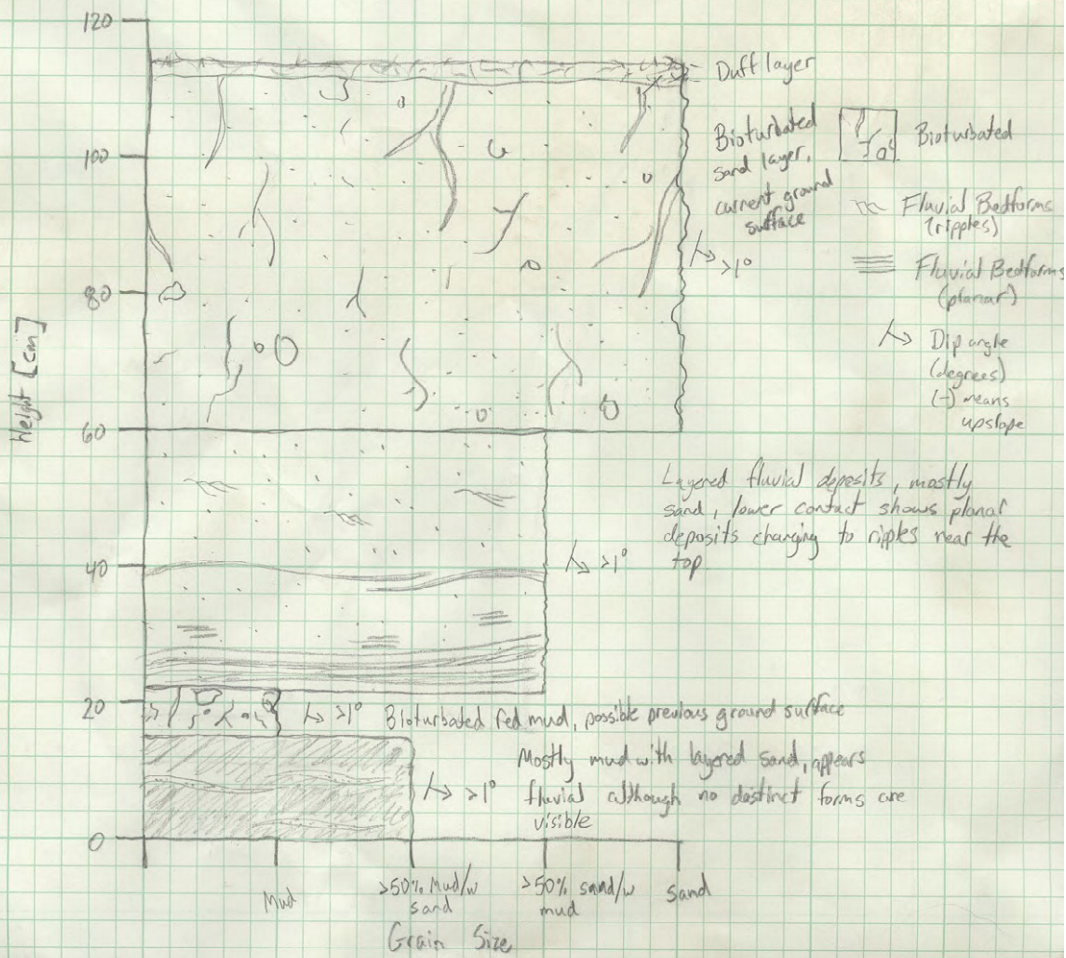 120
Duff layer
100
Bioturbated
sand layer,
current ground
surface
>1°
Bioturbated
Fluvial Bedforms
(ripples)
Fluvial Bedforms
(planar)
Dip angle
(degrees)
(-) means
upslope
80
Height [cm]
60
Layered fluvial deposits, mostly
sand, lower contact shows planar
deposits changing to ripples near the
top
40
>1°
20
>1° Bioturbated red mud, possible previous ground surface
Mostly mud with layered sand, appears
>1° fluvial although no distinct forms are
visible
0
Mud
>50% Mud/w
sand
>50% sand/w
mud
Sand
Grain Size